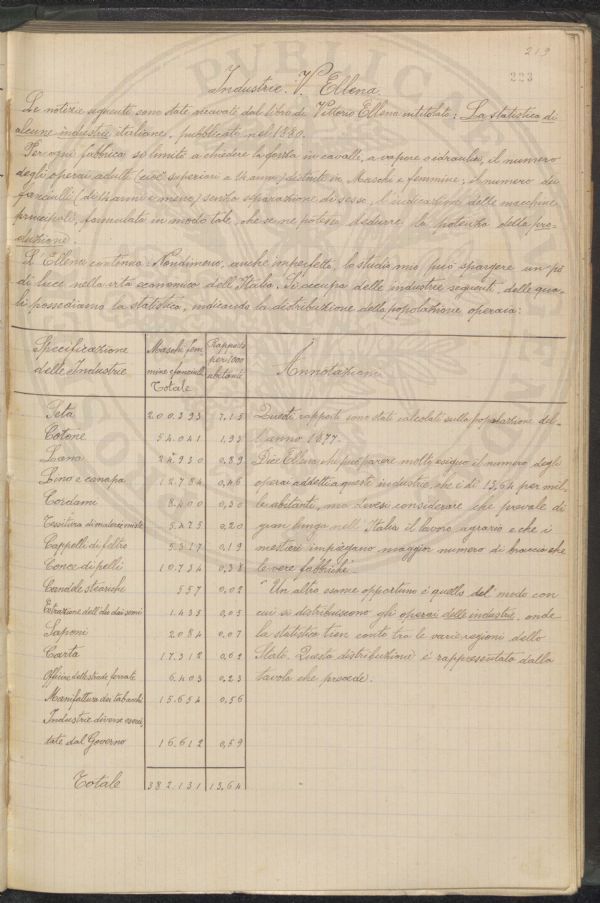 219
223
Industrie. V. Ellena.
Le notizie seguenti sono state ricavate dal libro di Vittorio Ellena intitolato: La statistica di
alcune industrie italiane, pubblicato nel 1880.
Per ogni fabbrica si limitò a chiedere la forza in cavalli, a vapore o idraulici, il numero
degli operai adulti (cioè superiori a 14 anni) distinti in Maschi e femmine; il numero dei
fanciulli (di 14 anni e meno) senza separazione di sesso, l'indicazione delle macchine
principali, formulata in modo tale, che se ne potesse dedurre la potenza della pro-
duzione.
L'Ellena continua: Nondimeno, anche imperfetto, lo studio mio può spargere un pò
di luce nella vita economica dell'Italia. Si occupa delle industrie seguenti, delle qua-
li possediamo la statistica, indicando la distribuzione della popolazione operaia:
Specificazione
delle Industrie
Maschi fem
mine e fanciulli
Totale
Rapporti
per 1000
abitanti
Annotazioni
Seta 200.393 7,15
Cotone 54.041 1,93
Lana 24.930 0,89
Lino e canapa 12.784 0,46
Cordami 8.400 0,30
Tessitura di materie miste 5.425 0,20
Cappelli di feltro 5.317 0,19
Conce di pelli 10.734 0,38
Candele steariche 557 0,02
Estrazione dell'olio dai semi 1.435 0,05
Saponi 2.084 0,07
Carta 17.312 0,62
Officine delle strade ferrate 6.403 0,23
Manifattura dei tabacchi 15.654 0,56
Industrie diverse eserci-
tate dal Governo 16.612 0,59
Totale 382.131 13,64
Questi rapporti sono stati calcolati sulla popolazione del-
l'anno 1877.
Dice Ellena che può parere molto esiguo il numero degli
operai addetti a queste industrie, che è di 13,64 per mil-
le abitanti, ma devesi considerare che prevale di
gran lunga nell'Italia il lavoro agrario e che i
mestieri impiegano maggior numero di braccia che
le vere fabbriche.
"Un altro esame opportuno è quello del modo con
cui si distribuiscono gli operai delle industrie, onde
la statistica tien conto tra le varie regioni dello
Stato. Questa distribuzione è rappresentata dalla
tavola che precede.